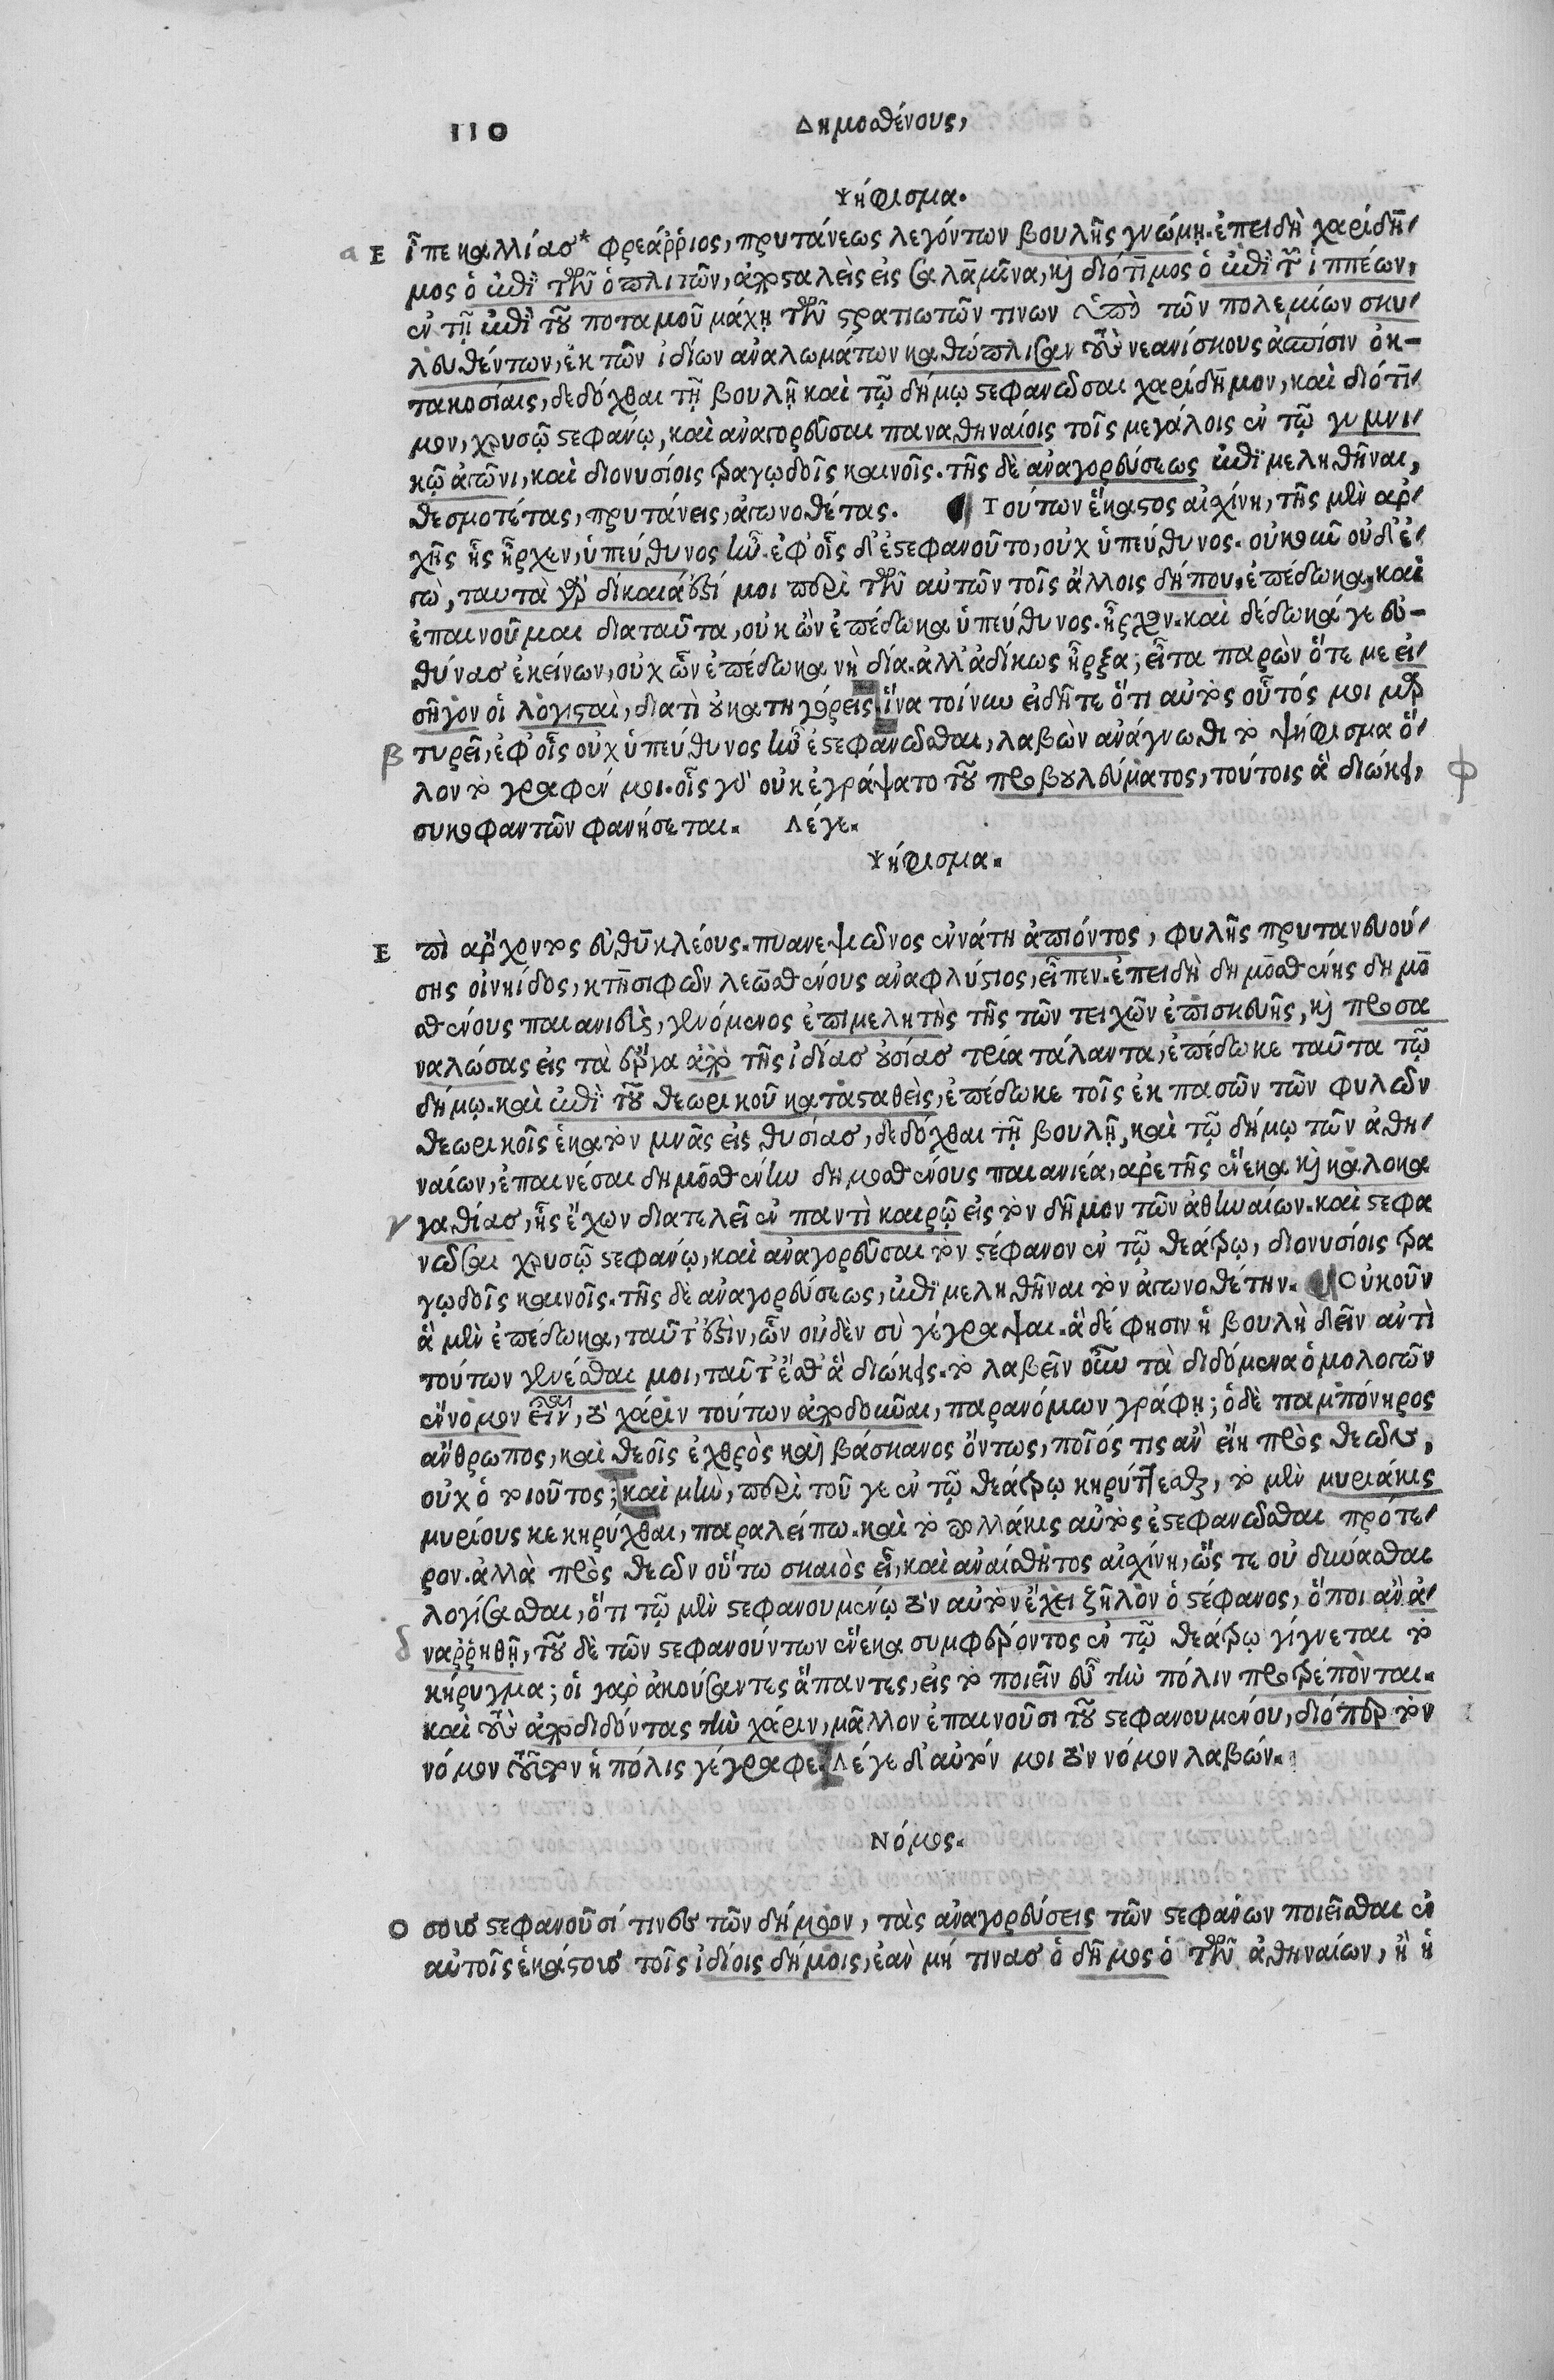 110 Δημοσθένους,
Ψήφισμα.
α Εἶπε καλλίας* φρεάῤῥιος, πρυτάνεως λεγόντων βουλῆς γνώμῃ. ἐπειδὴ χαρίδη-
μος ὁ ἐπὶ τῶν ὁπλιτῶν, ἀποσταλεὶς εἰς σαλαμῖνα, καὶ διότιμος ὁ ἐπὶ τῶν ἱππέων,
ἐν τῇ ἐπὶ τοῦ ποταμοῦ μάχῃ τῶν στρατιωτῶν τινων ὑπὸ τῶν πολεμίων σκυ-
λευθέντων, ἐκ τῶν ἰδίων ἀναλωμάτων καθώπλισαν τοὺς νεανίσκους ἀσπίσιν ὀκ-
τακοσίαις, δεδόχθαι τῇ βουλῇ καὶ τῷ δήμῳ στεφανῶσαι χαρίδημον, καὶ διότι-
μον, χρυσῷ στεφάνῳ, καὶ ἀναγορεῦσαι παναθηναίοις τοῖς μεγάλοις ἐν τῷ γυμνι-
κῷ ἀγῶνι, καὶ διονυσίοις τραγῳδοῖς καινοῖς. τῆς δὲ ἀναγορεύσεως ἐπιμεληθῆναι,
θεσμοτέτας, πρυτάνεις, ἀγωνοθέτας. Τούτων ἕκαστος αἰσχίνη, τῆς μὲν ἀρ-
χῆς ἧς ἦρχεν, ὑπεύθυνος ἦν. ἐφ' οἷς δ' ἐστεφανοῦτο, οὐχ ὑπεύθυνος. οὐκοῦν οὐδ' ἐ-
γὼ, ταυτὰ γὰρ δίκαιά ἐστί μοι περὶ τῶν αὐτῶν τοῖς ἄλλοις δήπου. ἐπέδωκα, καὶ
ἐπαινοῦμαι διαταῦτα, οὐκ ὢν ἐπέδωκα ὑπεύθυνος. ἦρχον. καὶ δέδωκά γε εὐ-
θύνας ἐκείνων, οὐχ ὧν ἐπέδωκα νὴ δία. ἀλλ' ἀδίκως ἦρξα; εἶτα παρὼν ὅτε με εἰ-
σῆγον οἱ λογισταὶ, διατὶ οὐ κατηγόρεις; ἵνα τοίνυν εἰδῆτε ὅτι αὐτὸς οὗτός μοι μαρ
β τυρεῖ, ἐφ' οἷς οὐχ ὑπεύθυνος ἦν ἐστεφανῶσθαι, λαβὼν ἀνάγνωθι τὸ ψήφισμα ὅ-
λον τὸ γραφέν μοι. οἷς γὰρ οὐκ ἐγράψατο τοῦ προβουλεύματος, τούτοις ἃ διώκει, φ
συκοφαντῶν φανήσεται. Λέγε.
Ψήφισμα.
Επὶ ἄρχοντος εὐθυκλέους. πυανεψιῶνος ἐννάτη ἀπιόντος, φυλῆς πρυτανευού-
σης οἰνηίδος, κτησιφῶν λεωσθένους ἀναφλύστιος, εἶπεν. ἐπειδὴ δημοσθένης δημο
σθένους παιανιεὺς, γενόμενος ἐπιμελητὴς τῆς τῶν τειχῶν ἐπισκευῆς, καὶ προσα
ναλώσας εἰς τὰ ἔργα ἀπὸ τῆς ἰδίας οὐσίας τρία τάλαντα, ἐπέδωκε ταῦτα τῷ
δήμῳ. καὶ ἐπὶ τοῦ θεωρικοῦ κατασταθεὶς, ἐπέδωκε τοῖς ἐκ πασῶν τῶν φυλῶν
θεωρικοῖς ἑκατὸν μνᾶς εἰς θυσίας, δεδόχθαι τῇ βουλῇ, καὶ τῷ δήμῳ τῶν ἀθη-
ναίων, ἐπαινέσαι δημοσθένην δημοσθένους παιανιέα, ἀρετῆς ἕνεκα καὶ καλοκα
γ γαθίας, ἧς ἔχων διατελεῖ ἐν παντὶ καιρῷ εἰς τὸν δῆμον τῶν ἀθηναίων. καὶ στεφα
νῶσαι χρυσῷ στεφάνῳ, καὶ ἀναγορεῦσαι τὸν στέφανον ἐν τῷ θεάτρῳ, διονυσίοις τρα
γῳδοῖς καινοῖς. τῆς δὲ ἀναγορεύσεως, ἐπιμεληθῆναι τὸν ἀγωνοθέτην. Οὐκοῦν
ἃ μὲν ἐπέδωκα, ταῦτ' ἐστὶν, ὧν οὐδὲν σὺ γέγραψαι. ἃ δέ φησιν ἡ βουλὴ δεῖν ἀντὶ
τούτων γενέσθαι μοι, ταῦτ' ἔσθ' ἃ διώκεις. τὸ λαβεῖν οὖν τὰ διδόμενα ὁμολογῶν
ἔννομον εἶναι, τὸ χάριν τούτων ἀποδοῦναι, παρανόμων γράφῃ; ὁ δὲ παμπόνηρος
ἄνθρωπος, καὶ θεοῖς ἐχθρὸς καὶ βάσκανος ὄντως, ποῖός τις ἂν εἴη πρὸς θεῶν,
οὐχ ὁ τοιοῦτος; καὶ μὴν, περὶ τοῦ γε ἐν τῷ θεάτρῳ κηρύττεσθαι, τὸ μὲν μυριάκις
μυρίους κεκηρύχθαι, παραλείπω. καὶ τὸ πολλάκις αὐτὸς ἐστεφανῶσθαι πρότε-
ρον. ἀλλὰ πρὸς θεῶν οὕτω σκαιὸς εἶ, καὶ ἀναίσθητος αἰσχίνη, ὥστε οὐ δύνασθαι
λογίσασθαι, ὅτι τῷ μὲν στεφανουμένῳ τὸν αὐτὸν ἔχει ζῆλον ὁ στέφανος, ὅποι ἂν ἀ-
δ ναῤῥηθῇ, τοῦ δὲ τῶν στεφανούντων ἕνεκα συμφέροντος ἐν τῷ θεάτρῳ γίγνεται τὸ
κήρυγμα; οἱ γὰρ ἀκούσαντες ἅπαντες, εἰς τὸ ποιεῖν εὖ τὴν πόλιν προτρέπονται.
καὶ τοὺς ἀποδιδόντας τὴν χάριν, μᾶλλον ἐπαινοῦσι τοῦ στεφανουμένου, διόπερ τὸν
νόμον τοῦτον ἡ πόλις γέγραφε. Λέγε δ' αὐτόν μοι τὸν νόμον λαβών.
Νόμος.
Οσους στεφανοῦσί τινες τῶν δήμων, τὰς ἀναγορεύσεις τῶν στεφάνων ποιεῖσθαι ἐν
αὐτοῖς ἑκάστους τοῖς ἰδίοις δήμοις, ἐὰν μή τινας ὁ δῆμος ὁ τῶν ἀθηναίων, ἢ ἡ